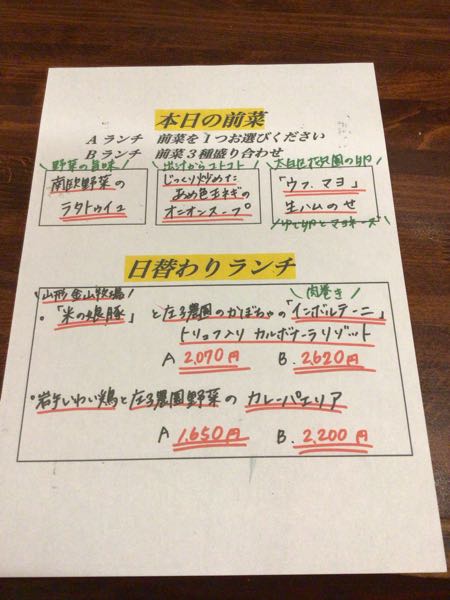 本日の前菜
Aランチ 前菜を1つお選びください
Bランチ 前菜3種盛り合わせ
野菜の旨味
南欧野菜の
ラタトゥイユ
出汁からコトコト
じっくり炒めた
あめ色玉ネギの
オニオンスープ
「ウフ.マヨ」
生ハムのせ
ゆで卵とマヨネーズ
日替わりランチ
山形金山牧場
肉巻き
・「米の娘豚」と庄子農園のかぼちゃの「インボルティーニ」
トリュフ入りカルボナーラリゾット
A 2,070円 B. 2,620円
・岩手いわい鶏と庄子農園野菜のカレーパエリア
A 1,650円 B. 2,200円